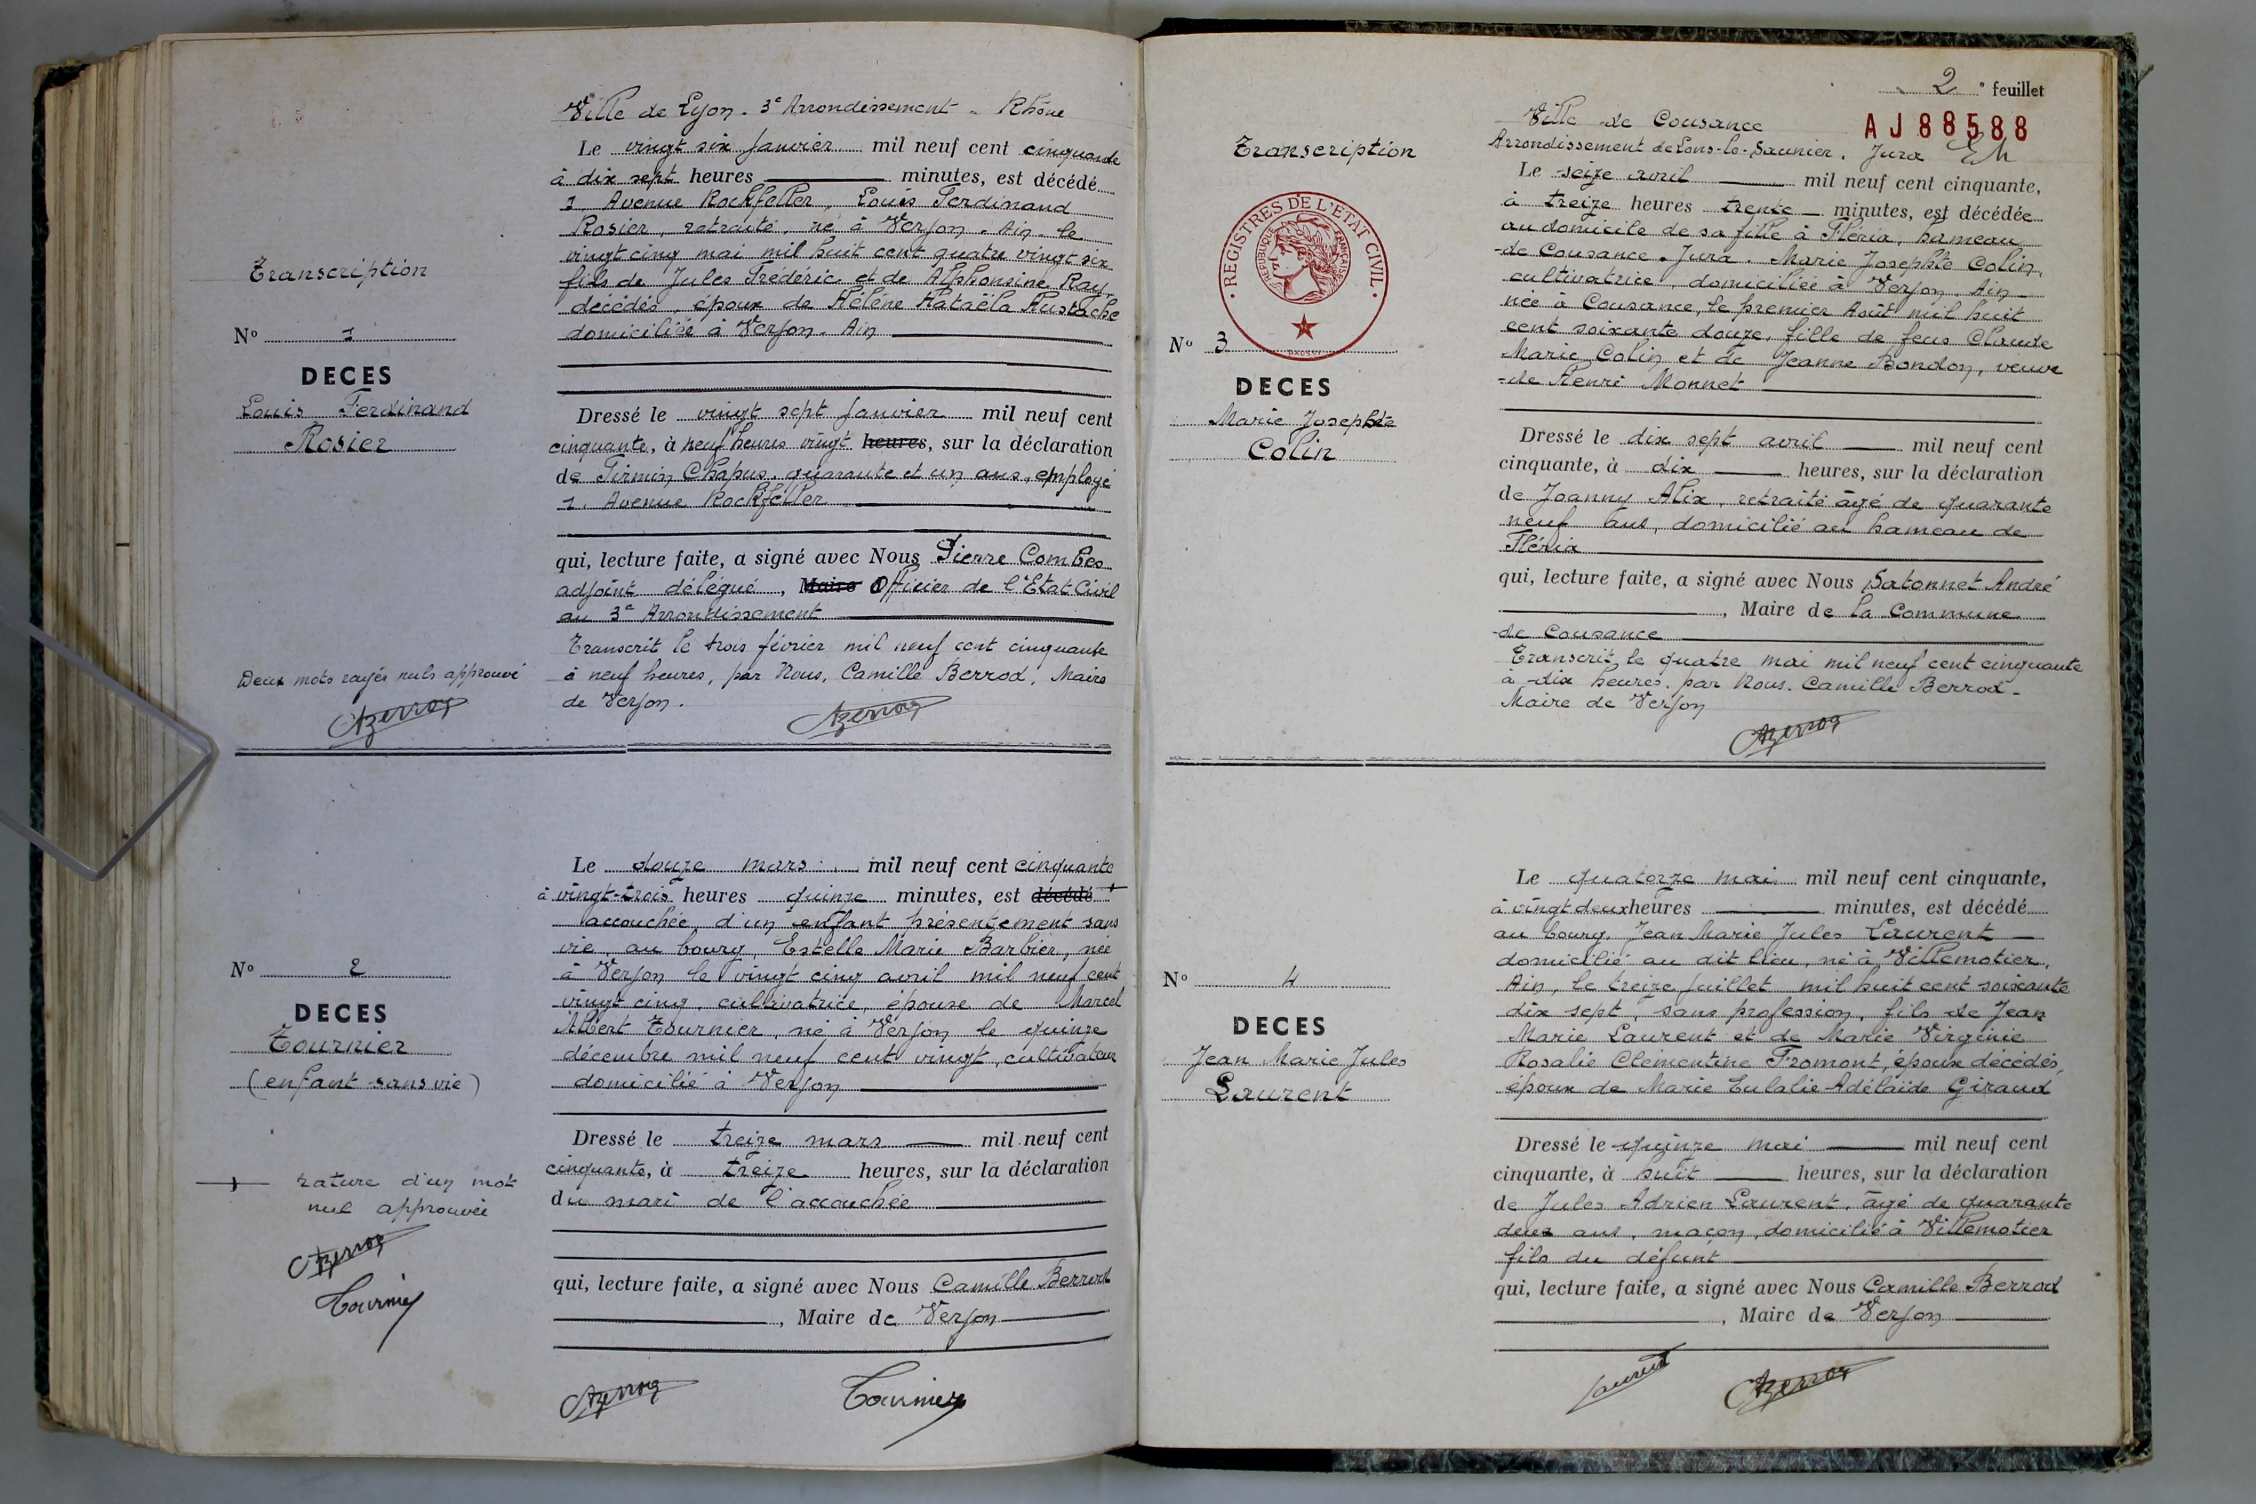 Ville de Lyon. 3e Arrondissement - Rhône
Le vingt six Janvier mil neuf cent cinquante
à dix sept heures minutes, est décédé
1, Avenue Rockfeller, Louis Ferdinand
Rosier, retraité, né à Verjon. Ain. le
vingt cinq mai mil huit cent quatre vingt six
fils de Jules Frédéric et de Alphonsine Ray,
décédés, époux de Hélène Rataëla Eustache
domicilié à Verjon. Ain
Transcription
N° 1
DECES
Louis Ferdinand
Rosier
Dressé le vingt sept Janvier mil neuf cent
cinquante, à neuf heures vingt heures, sur la déclaration
de Firmin Chapus, quarante et un ans, employé
1, Avenue Rockfeller
qui, lecture faite, a signé avec Nous Pierre Combes
adjoint délégué, Maire Officier de l'Etat Civil
au 3e Arrondissement
Transcrit le trois février mil neuf cent cinquante
à neuf heures, par Nous, Camille Berrod, Maire
de Verjon.
Deux mots rayés nuls approuvé
CBerrod
CBerrod
Le douze mars mil neuf cent cinquante
à vingt-trois heures quinze minutes, est décédé +
accouchée d'un enfant présentement sans
vie, au bourg, Estelle Marie Barbier, née
à Verjon le vingt cinq avril mil neuf cent
vingt cinq, cultivatrice, épouse de Marcel
Albert Tournier, né à Verjon le quinze
décembre mil neuf cent vingt, cultivateur
domicilié à Verjon
N° 2
DECES
Tournier
(enfant sans vie)
Dressé le treize mars mil neuf cent
cinquante, à treize heures, sur la déclaration
du mari de l'accouchée
+ rature d'un mot
nul approuvée
CBerrod
Tournier
qui, lecture faite, a signé avec Nous Camille Berrod
, Maire de Verjon
CBerrod
Tournier
2e feuillet
AJ88588
Ville de Cousance
Arrondissement de Lons-le-Saunier. Jura
Le seize avril mil neuf cent cinquante,
à treize heures trente minutes, est décédée
au domicile de sa fille à Fléria, hameau
de Cousance. Jura. Marie Josephte Colin,
cultivatrice, domiciliée à Verjon. Ain
née à Cousance, le premier Août mil huit
cent soixante douze, fille de feus Claude
Marie Colin et de Jeanne Bondon, veuve
de Henri Monnet
Transcription
REGISTRES DE L'ETAT CIVIL
REPUBLIQUE FRANÇAISE
N° 3
DECES
Marie Josephte
Colin
Dressé le dix sept avril mil neuf cent
cinquante, à dix heures, sur la déclaration
de Joanny Alix, retraité âgé de quarante
neuf ans, domicilié au hameau de
Fléria
qui, lecture faite, a signé avec Nous Satonnet André
, Maire de la Commune
de Cousance
Transcrit le quatre mai mil neuf cent cinquante
à dix heures. par Nous. Camille Berrod
Maire de Verjon
CBerrod
Le quatorze mai mil neuf cent cinquante,
à vingt deux heures minutes, est décédé
au bourg. Jean Marie Jules Laurent
domicilié au dit lieu, né à Villemotier,
Ain, le treize juillet mil huit cent soixante
dix sept, sans profession, fils de Jean
Marie Laurent et de Marie Virginie
Rosalie Clémentine Fromont, époux décédés,
époux de Marie Eulalie Adélaïde Giraud
N° 4
DECES
Jean Marie Jules
Laurent
Dressé le quinze mai mil neuf cent
cinquante, à huit heures, sur la déclaration
de Jules Adrien Laurent, âgé de quarante
deux ans, maçon, domicilié à Villemotier
fils du défunt
qui, lecture faite, a signé avec Nous Camille Berrod
, Maire de Verjon
Laurent
CBerrod